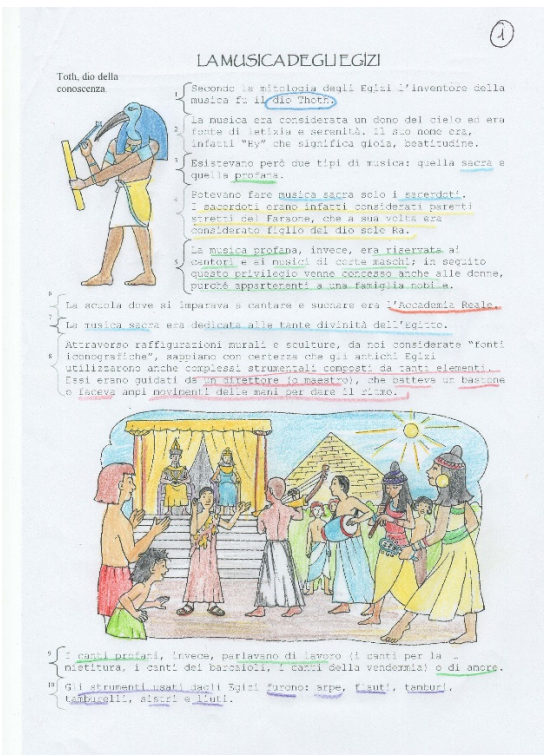 1
LA MUSICA DEGLI EGIZI
Toth, dio della
conoscenza.
1 Secondo la mitologia degli Egizi l'inventore della
musica fu il dio Thoth.
2 La musica era considerata un dono del cielo ed era
fonte di letizia e serenità. Il suo nome era,
infatti "Hy" che significa gioia, beatitudine.
3 Esistevano però due tipi di musica: quella sacra e
quella profana.
4 Potevano fare musica sacra solo i sacerdoti.
I sacerdoti erano infatti considerati parenti
stretti del Faraone, che a sua volta era
considerato figlio del dio sole Ra.
5 La musica profana, invece, era riservata ai
cantori e ai musici di corte maschi; in seguito
questo privilegio venne concesso anche alle donne,
purché appartenenti a una famiglia nobile.
6 La scuola dove si imparava a cantare e suonare era l'Accademia Reale.
7 La musica sacra era dedicata alle tante divinità dell'Egitto.
8 Attraverso raffigurazioni murali e sculture, da noi considerate "fonti
iconografiche", sappiamo con certezza che gli antichi Egizi
utilizzarono anche complessi strumentali composti da tanti elementi.
Essi erano guidati da un direttore (o maestro), che batteva un bastone
o faceva ampi movimenti delle mani per dare il ritmo.
9 I canti profani, invece, parlavano di lavoro (i canti per la
mietitura, i canti dei barcaioli, i canti della vendemmia) o di amore.
10 Gli strumenti usati dagli Egizi furono: arpe, flauti, tamburi,
tamburelli, sistri e liuti.